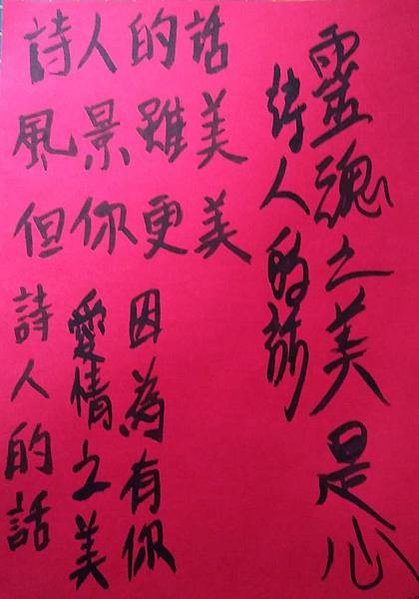 靈魂之美是心
詩人的話
詩人的話
風景雖美
但你更美
因為有你
愛情之美
詩人的話